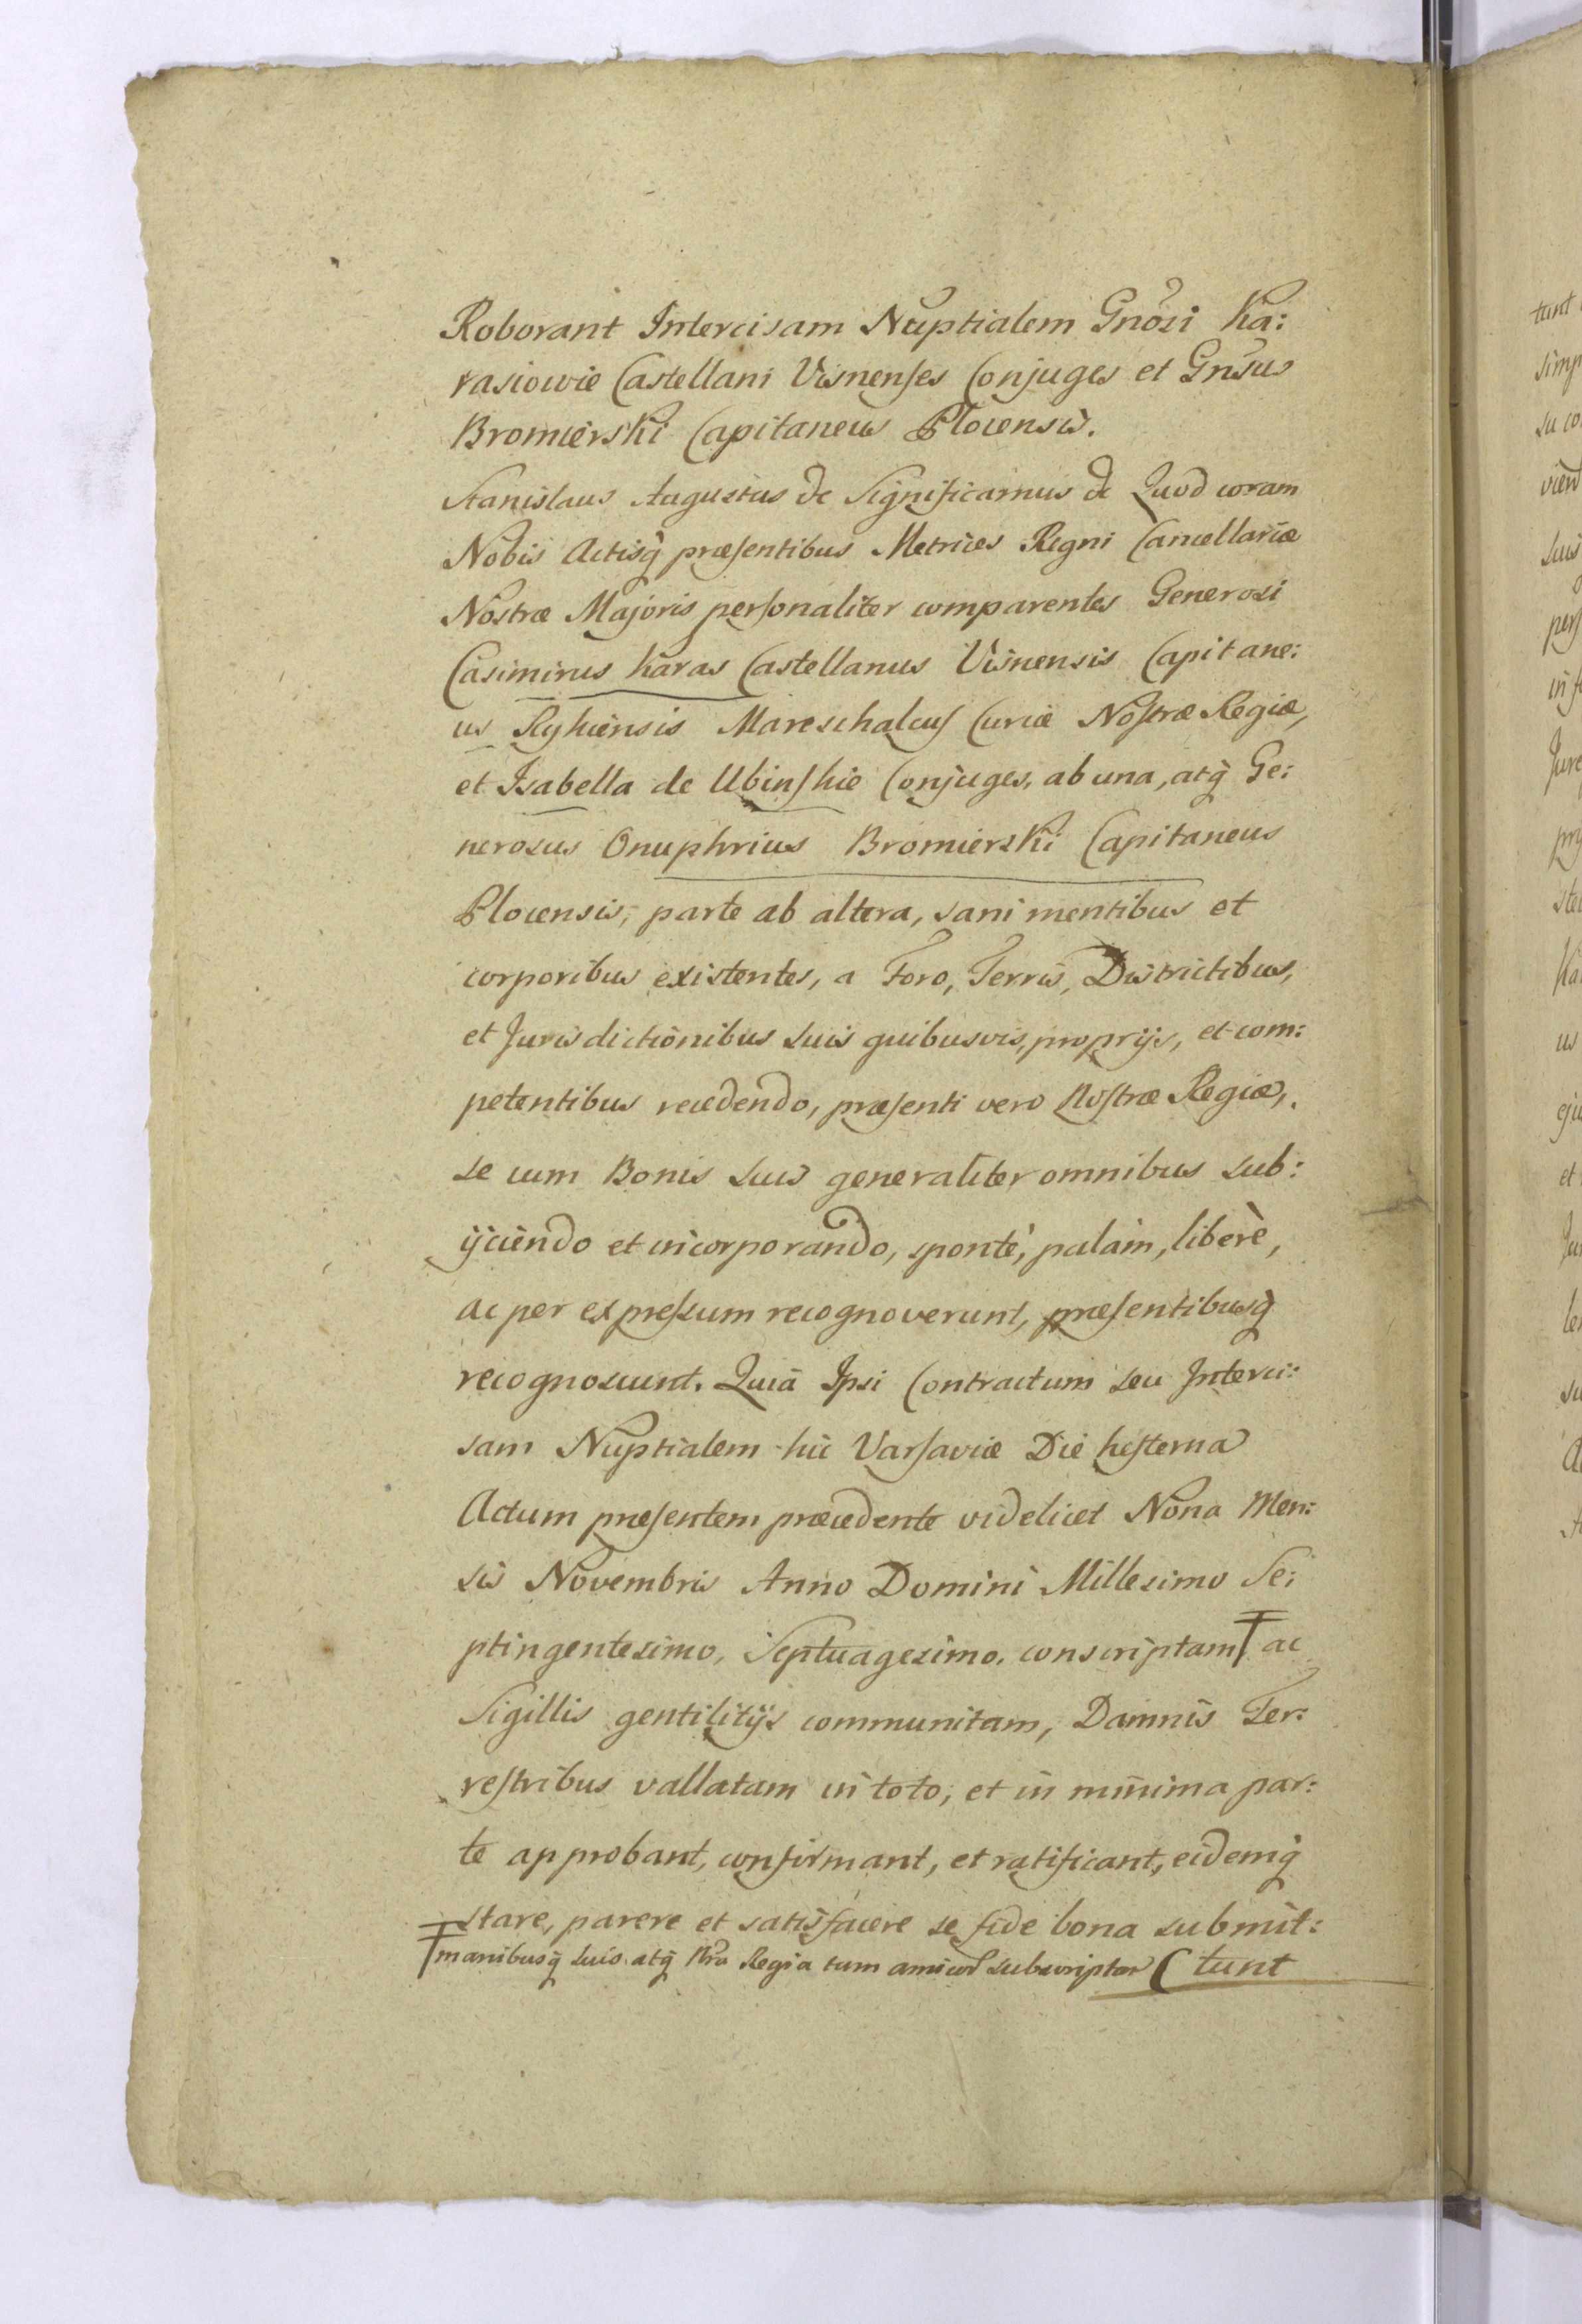 Roborant Intercisam Nuptialem Gnosi Ka:
rasiowie Castellani Visnenses Conjuges et Gnsus
Bromierski Capitaneus Plocensis.
Stanislaus Augustus &c Significamus &c Quod coram
Nobis Actisq præsentibus Metrices Regni Cancellariæ
Nostræ Majoris personaliter comparentes Generosi
Casimirus Karas Castellanus Visnensis Capitane:
us Rykiensis Mareschalcus Curiæ Nostræ Regiæ,
et Isabella de Ubinskie Conjuges, ab una, atq Ge:
nerosus Onuphrius Bromierski Capitaneus
Plocensis, parte ab altera, sani mentibus et
corporibus existentes, a Foro, Terris, Districtibus,
et Jurisdictionibus suis quibusvis, proprijs, et com:
petentibus recedendo, præsenti vero Nostræ Regiæ,
se cum Bonis suis generaliter omnibus sub:
ijciendo et incorporando, sponte, palam, libere,
ac per expressum recognoverunt, præsentibusq
recognoscunt. Quia Ipsi Contractum seu Interci:
sam Nuptialem hic Varsaviæ Die hesterna
Actum præsentem præcedente videlicet Nona Men:
sis Novembris Anno Domini Millesimo Se:
ptingentesimo, Septuagesimo. conscriptam ac
Sigillis gentilitijs communitam, Damnis Ter:
restribus vallatam in toto, et in minima par:
te approbant, confirmant, et ratificant, eidemq
stare, parere et satisfacere se fide bona submit:
manibusq suis atq Nra Regia tum amicor subscriptam (tunt